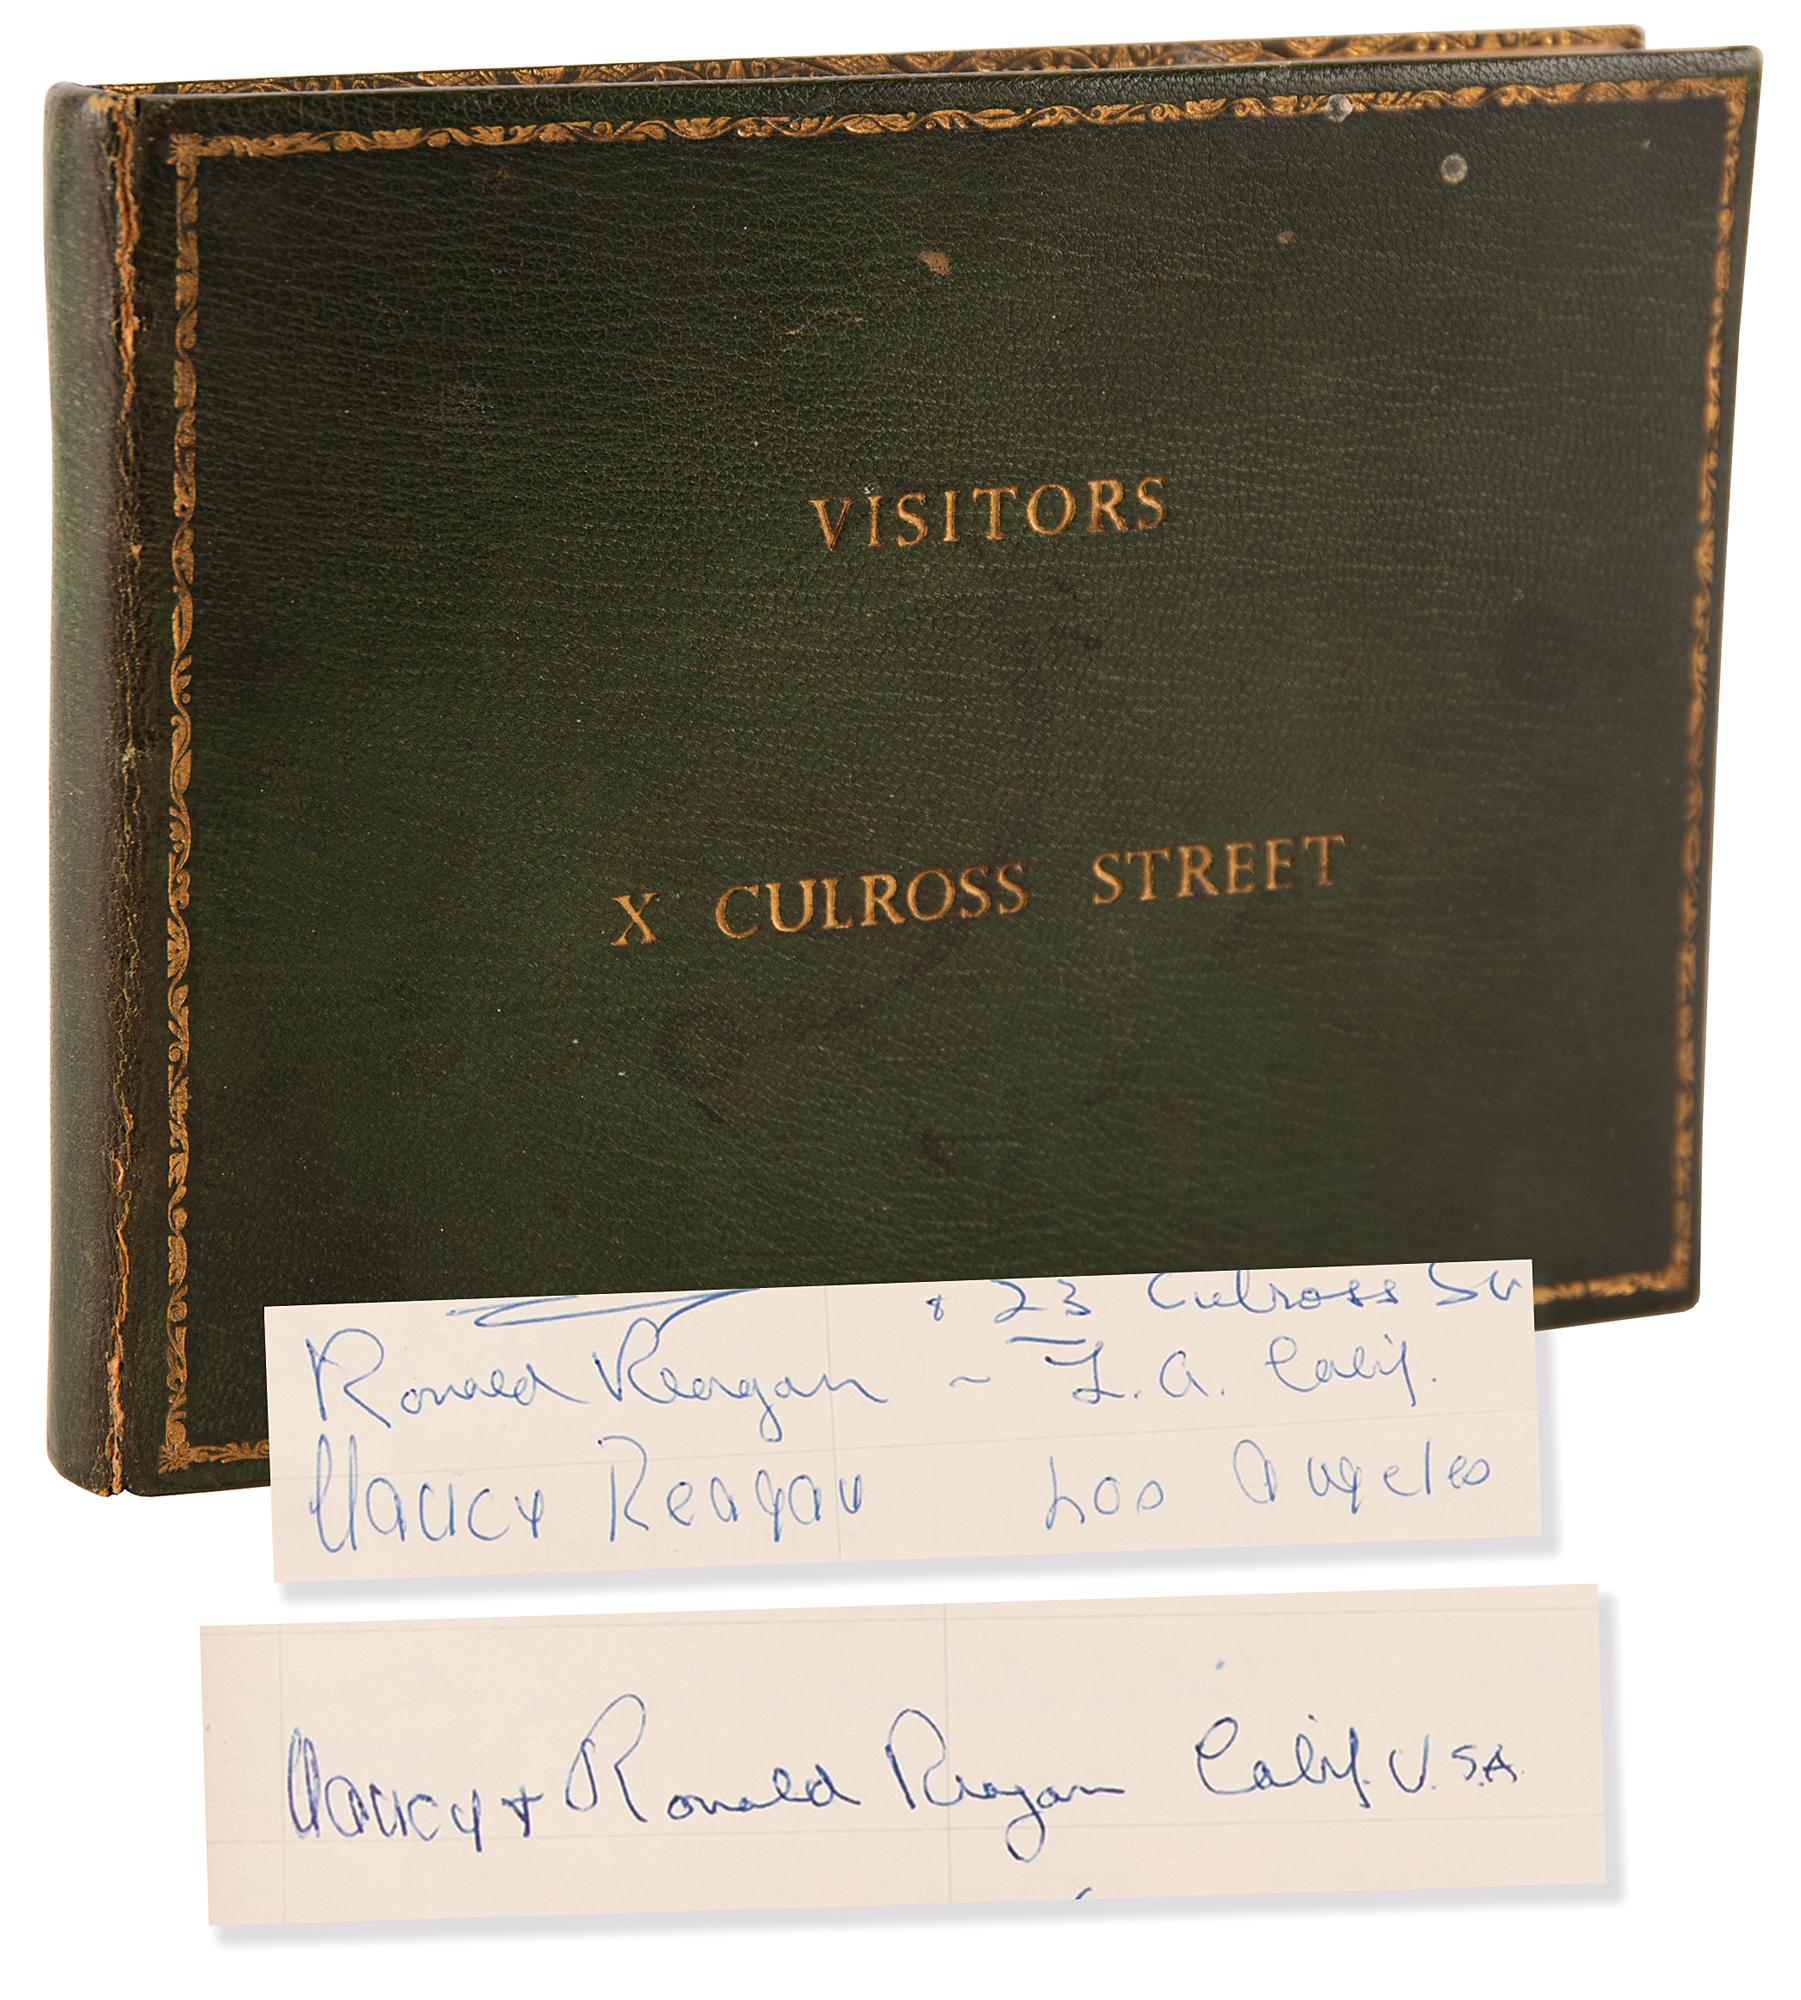 VISITORS
X CULROSS STREET
& 23 Culross St
Ronald Reagan - L.A. Calif.
Nancy Reagan Los Angeles
Nancy & Ronald Reagan Calif. U.S.A.